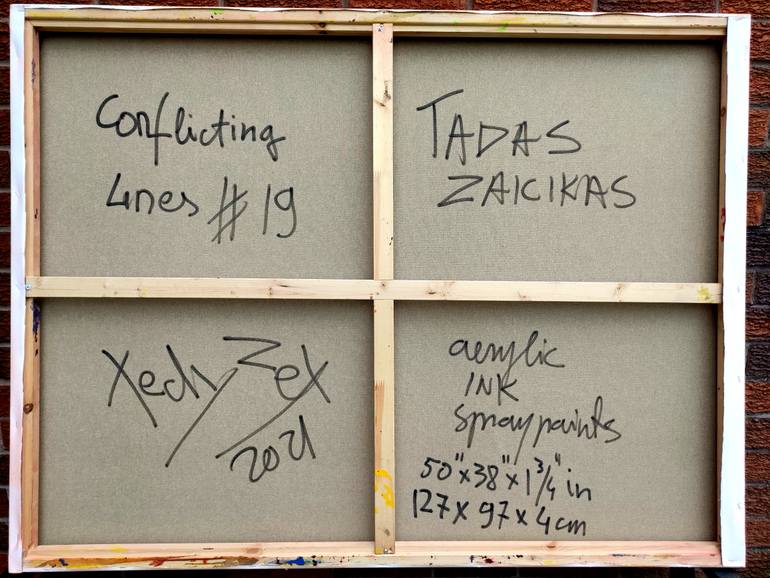 Conflicting
Lines #19
TADAS
ZAICIKAS
Zex
2021
acrylic
INK
spray paints
50"x38"x1 3/4" in
127x97x4cm